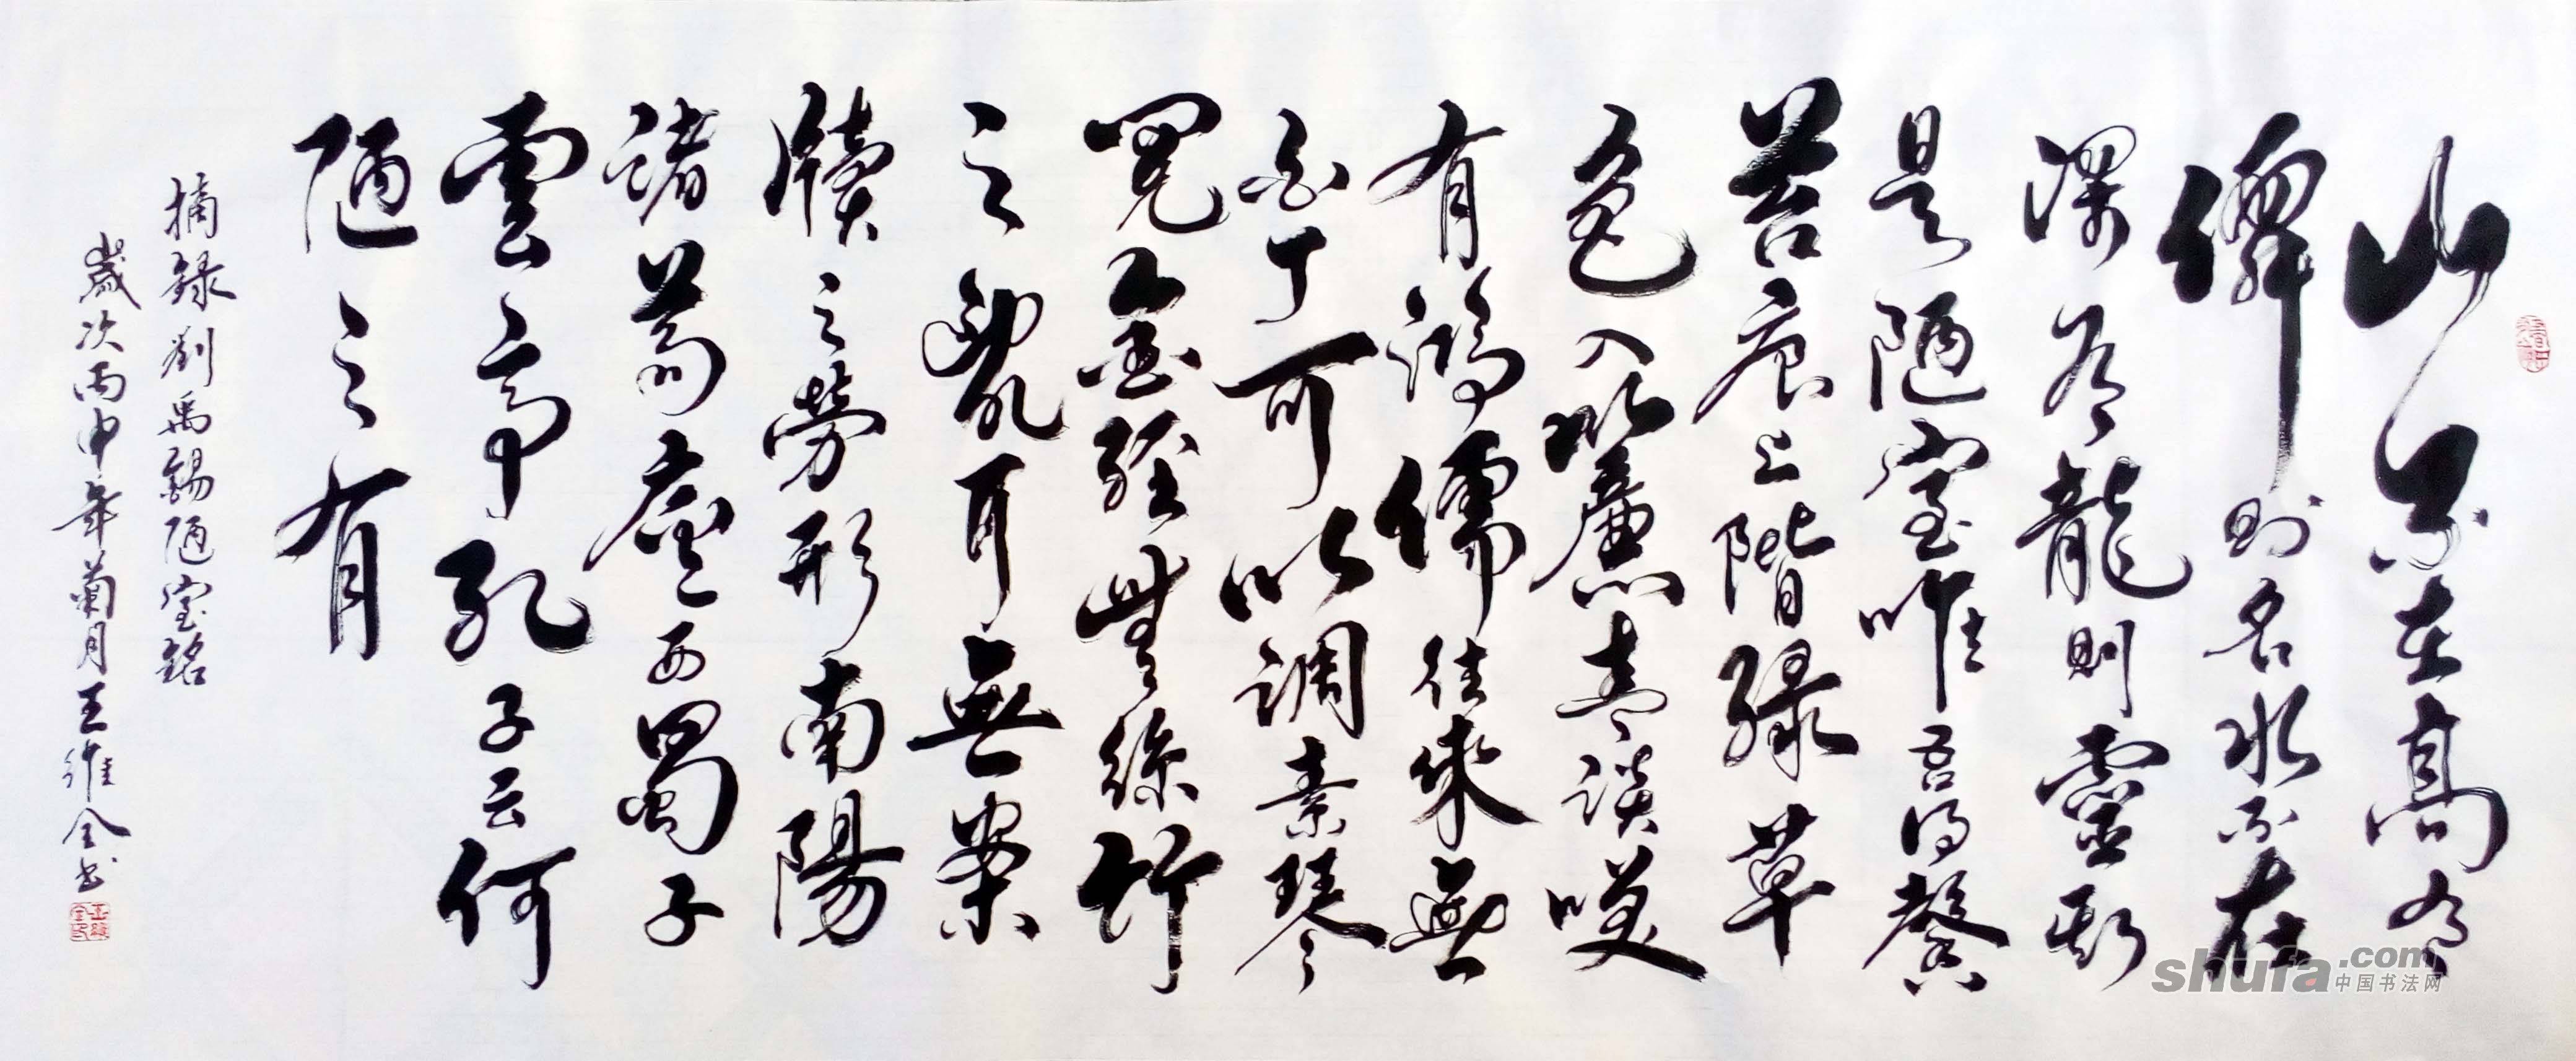 山不在高有
僊則名水不在
深有龍則靈斯
是陋室唯吾德馨
苔痕上階緑草
色入簾青談咲
有鴻儒往來無
白丁可以調素琴
閲金經無絲竹
之亂耳無案
牘之勞形南陽
諸葛廬西蜀子
雲亭孔子云何
陋之有
摘録劉禹錫陋室銘
歲次丙申年菊月王維全书
shufa.com
中国书法网